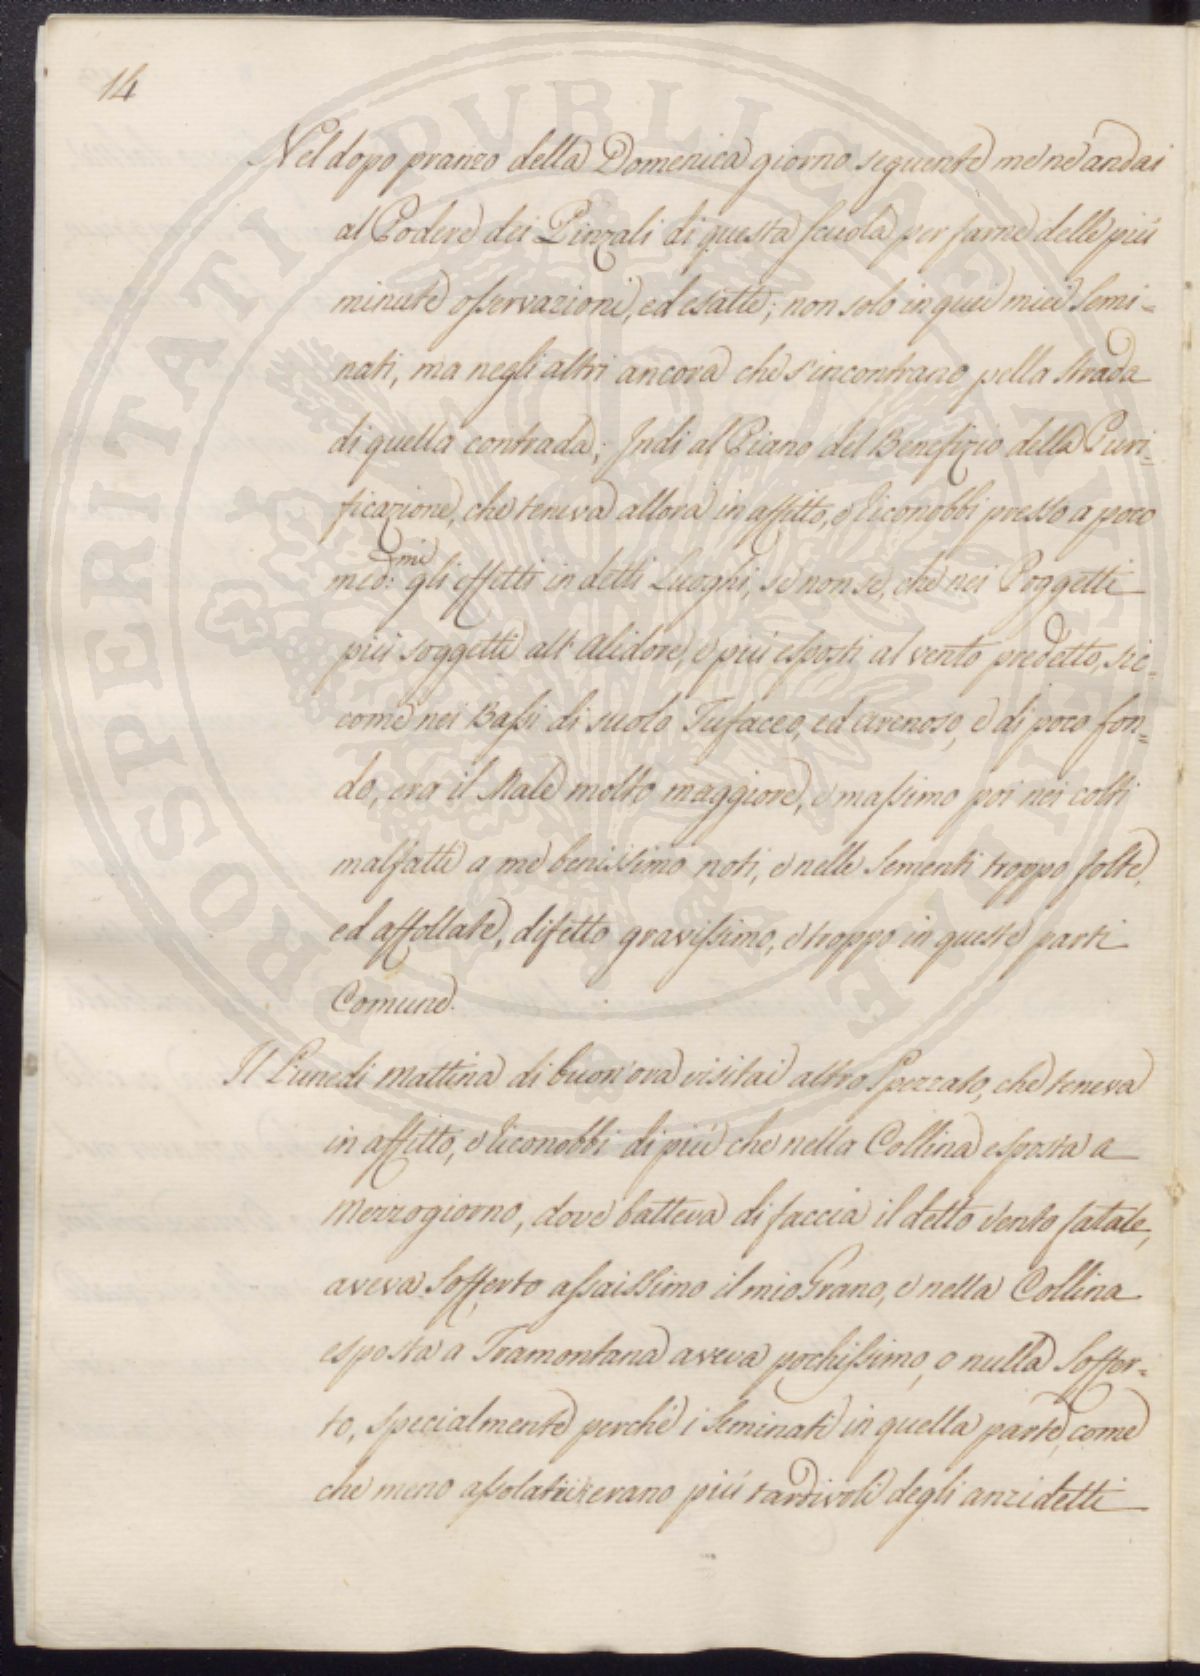 14
Nel dopo pranzo della Domenica giorno seguente me ne andai
al Podere dei Pinzali di questa Scuola per farne delle più
minute osservazioni, ed esatte; non solo in quei miei Semi=
nati, ma negli altri ancora che s'incontrano pella Strada
di quella contrada; Indi al Piano del Benefizio della Puri=
ficazione, che teneva allora in affitto, e riconobbi presso a poco
med:mi gli effetti in detti Luoghi, se non se, che nei Poggetti
più soggetti all'Alidore, e più esposti al vento predetto, sic=
come nei Bassi di suolo Tufaceo, ed arenoso, e di poco fon=
do, era il Male molto maggiore, e massimo poi nei colti
malfatti a me benissimo noti, e nelle Sementi troppo folte,
ed affollate, difetto gravissimo, e troppo in queste parti
Comune.
Il Lunedi mattina di buon'ora visitai altro Spezzato, che teneva
in affitto, e riconobbi di più che nella Collina esposta a
Mezzogiorno, dove batteva di faccia il detto Vento fatale,
aveva Sofferto assaissimo il mio Grano, e nella Collina
esposta a Tramontana aveva pochissimo, o nulla Soffer=
to, specialmente perchè i Seminati in quella parte, come
che meno assolatii erano più tardivoli degli anzidetti
PROSPERITATI PUBLICAE AUGENDAE